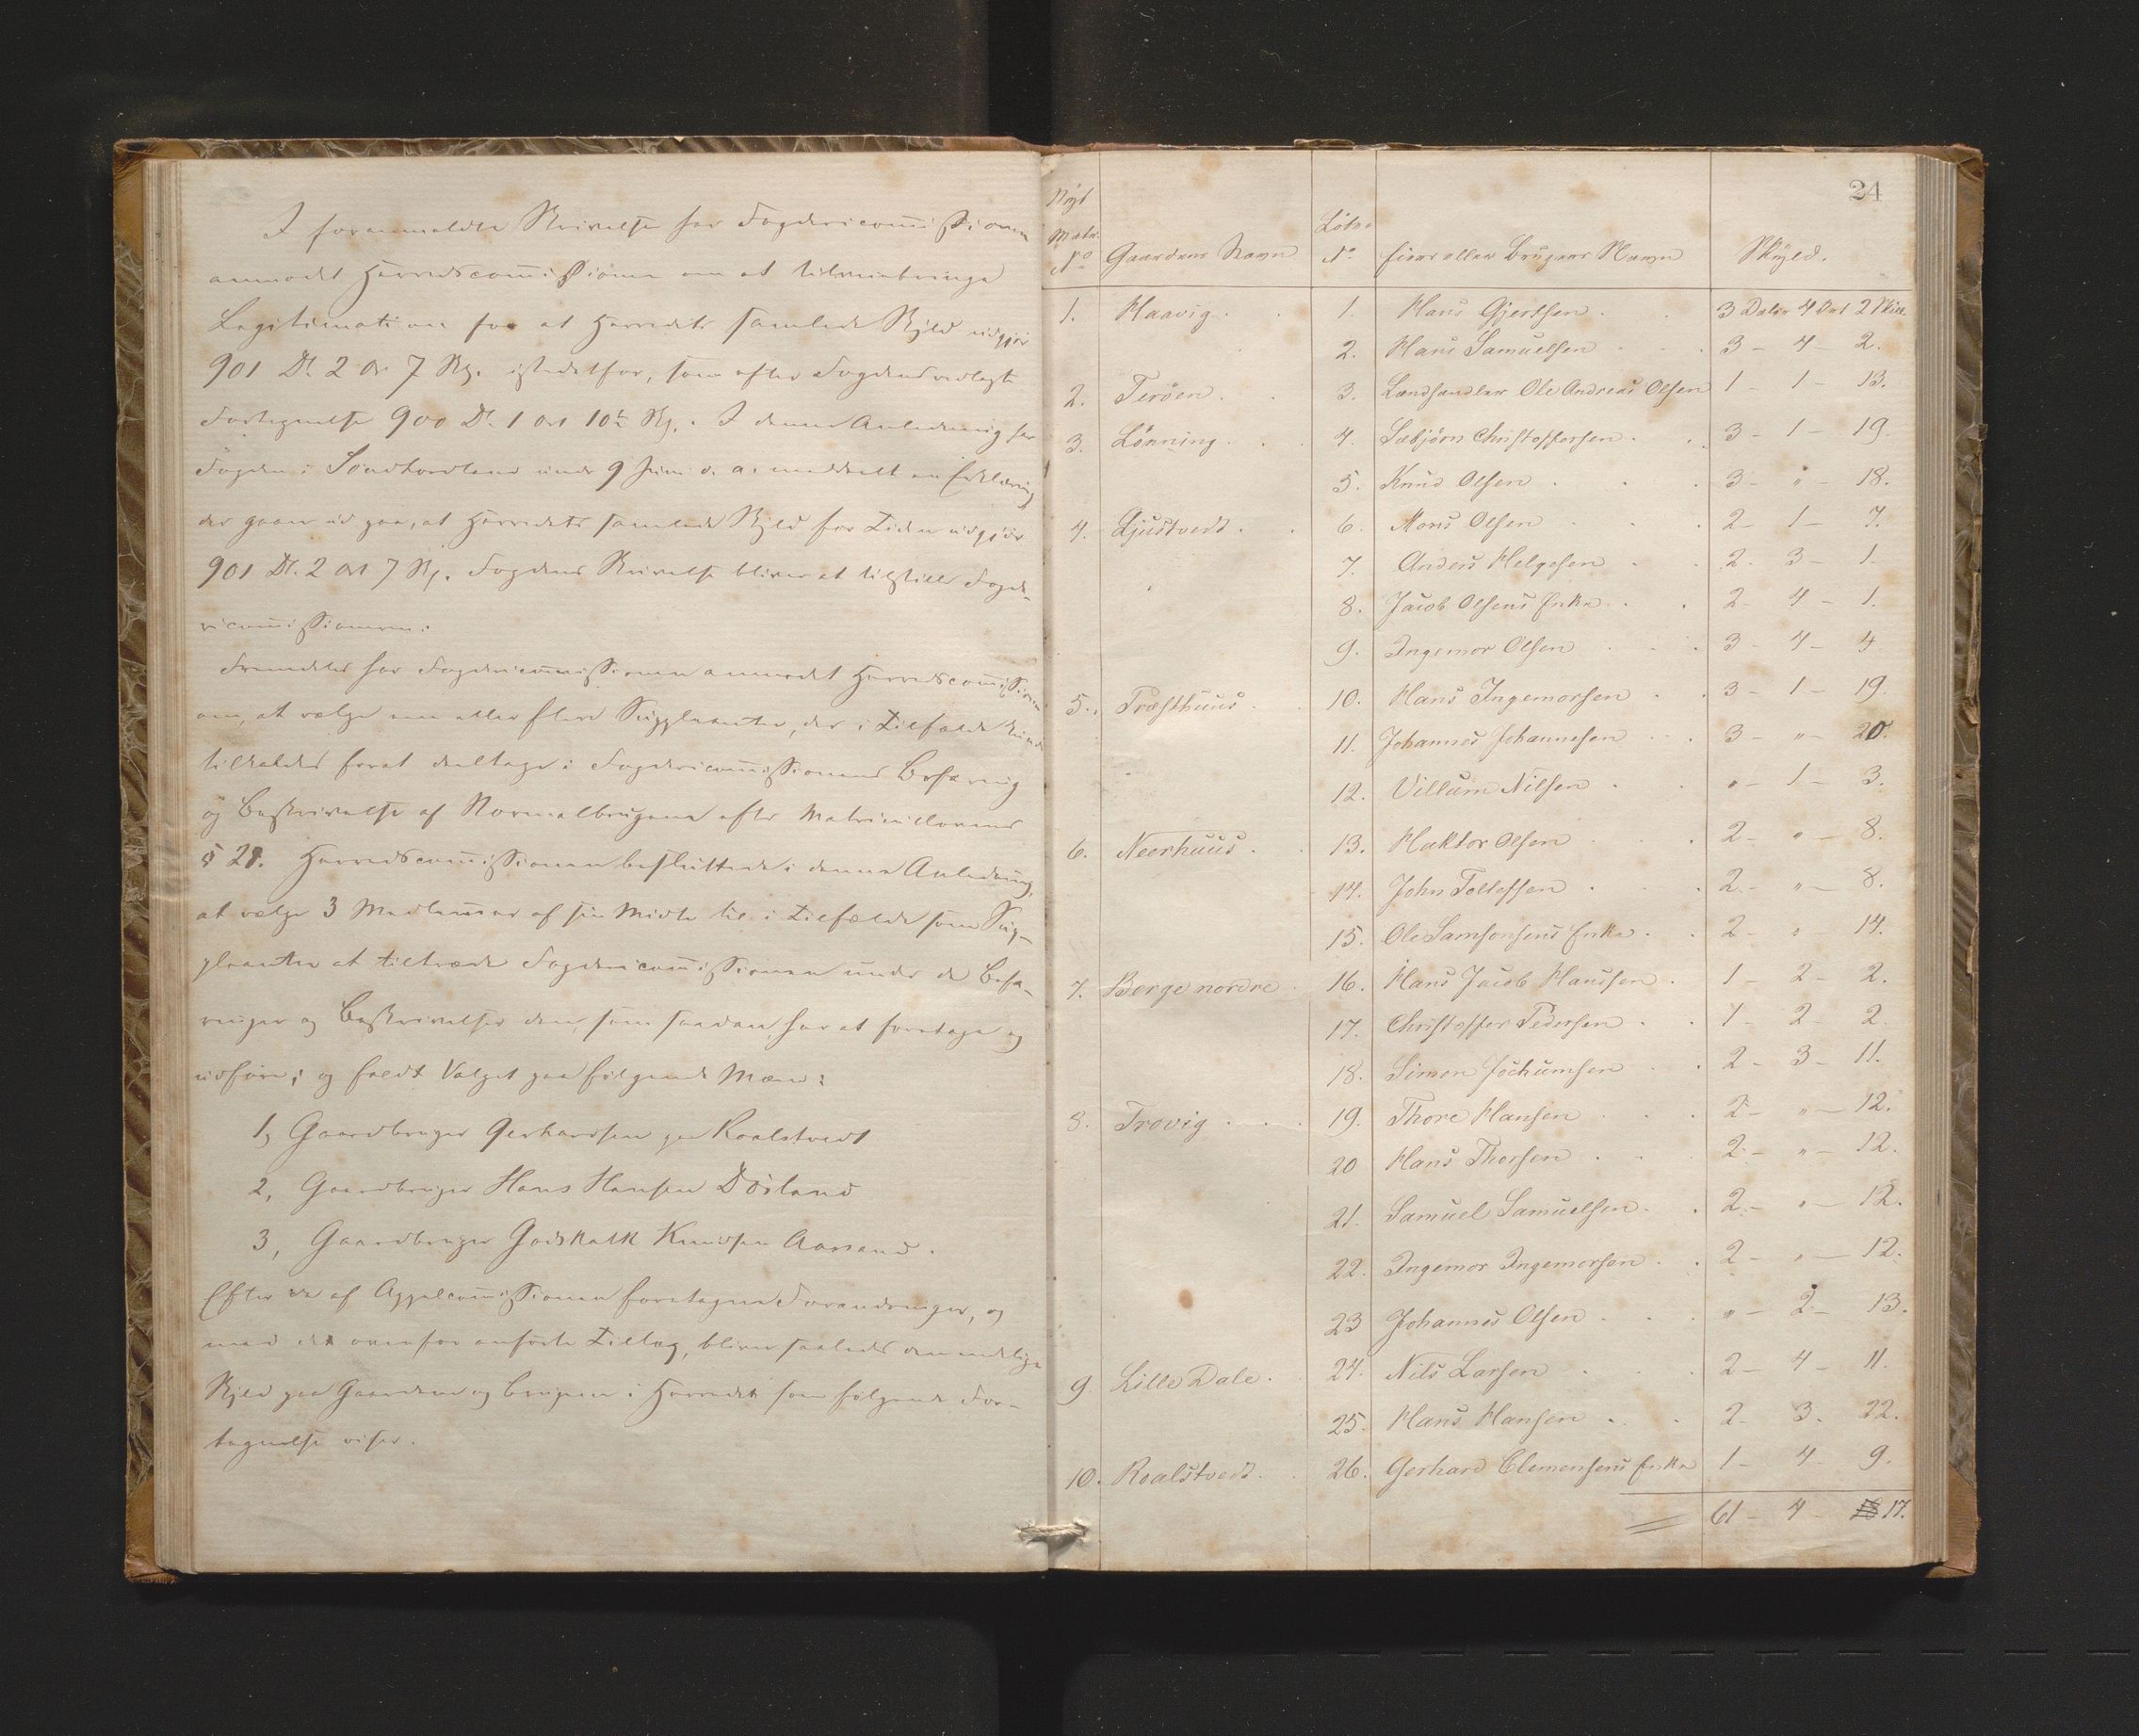 I foranmeldte Skrivelse har Fogdericommissionen
anmodet Herredscommissionen om at tilveiebringe
Legitimation for at Herredets samlede Skyld udgjør
901 Dl. 2 Ort 7 Sk. istedetfor, som efter Fogdens vedlagte
Fortegnelse 900 Dl. 1 Ort 10 Sk. I denne Anledning har
Fogden i Søndhordland under 9 Juni d. a. meddeelt en Erklæring
der gaar ud paa, at Herredets samlede Skyld for Tiden udgjør
901 Dl. 2 Ort 7 Sk. Fogdens Skrivelse bliver at tilstille Fogde-
ricommissionen.
Fremdeles har Fogdericommissionen anmodet Herredscommissionen
om, at vælge een eller flere Suppleanter, der i Tilfælde kunde
tilkaldes forat deeltage i Fogdericommissionens Befaring
og Beskrivelse af Normalbrugene efter Matriculovens
§ 28. Herredscommissionen besluttede i denne Anledning,
at vælge 3 Medlemmer af sin Midte til i Tilfælde som Sup-
pleanter at tiltræde Fogdericommissionen under de Befa-
ringer og Beskrivelser den som saadan har at foretage og
udføre; og faldt Valget paa følgende Mænd:
1, Gaardbruger Gerhardsen paa Roalstvedt
2, Gaardbruger Hans Hansen Døsland
3, Gaardbruger Godskalk Knudsen Aarsand.
Efter de af Appelcommissionen foretagne Forandringer, og
med det ovenfor anførte Tillæg, bliver saaledes den endelige
Skyld paa Gaardene og Brugene i Herredet som følgende For-
tegnelse viser.
24
Nyt Matr. No Gaardens Navn Løbe No Eiers eller Brugers Navn Skyld.
1. Haavig. 1. Hans Gjertsen 3 Daler 4 Ort 2 Skill.
2. Hans Samuelsen 3 - 4 - 2.
2. Terøen. 3. Landhandler Ole Andreas Olsen 1 - 1 - 13.
3. Lønning. 4. Sæbjørn Christoffersen. 3 - 1 - 19.
5. Knud Olsen 3 - " - 18.
4. Ljustvedt. 6. Mons Olsen 2 - 1 - 7.
7. Anders Helgesen 2. 3 - 1.
8. Jacob Olsens Enke 2 - 4 - 1.
9. Ingemor Olsen 3 - 4 - 4
5. Præsthuus 10. Hans Ingemorsen 3 - 1 - 19.
11. Johannes Johannesen 3 - " - 20.
12. Villum Nilsen " - 1 - 3.
6. Neerhuus. 13. Haktor Olsen 2 - " - 8.
14. John Tollefsen 2 - " - 8.
15. Ole Samsonsens Enke 2 - " 14.
7. Berge nordre 16. Hans Jacob Hansen. 1 - 2 - 2.
17. Christoffer Pedersen 1 - 2 - 2
18. Simen Jochumsen 2 - 3 - 11.
8. Trovig 19. Thore Hansen 2 - " - 12.
20 Hans Thorsen 2 - " - 12.
21. Samuel Samuelsen. 2 - " - 12.
22. Ingemor Ingemorsen 2 - " - 12.
23 Johannes Olsen " - 2 - 13.
9 Lille Dale. 24. Nils Larsen 2 - 4 - 11.
25. Hans Hansen 2 - 3. 22.
10. Roalstvedt. 26. Gerhard Clemensens Enke 1 - 4 - 9.
61 - 4 - 17.